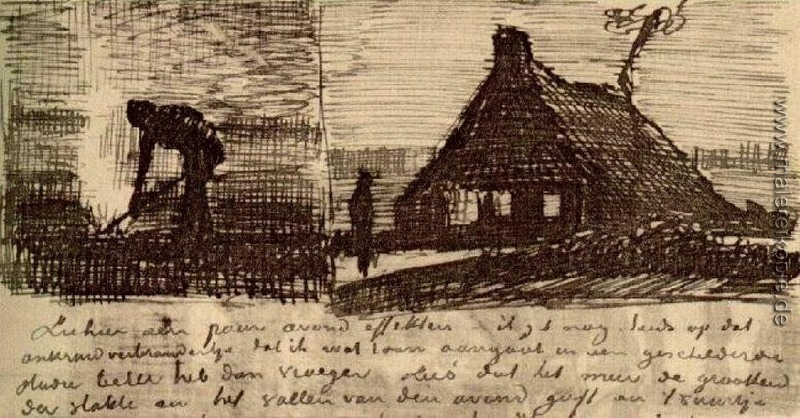 Ziehier een paar avond effekten - ik zit nog steeds op dat
onkruidverbrandertje dat ik wat toon aangaat in een geschilderde
studie beter heb dan vroeger dat het meer de grootheid
der vlakte en het vallen van den avond geeft en 't vuurtje